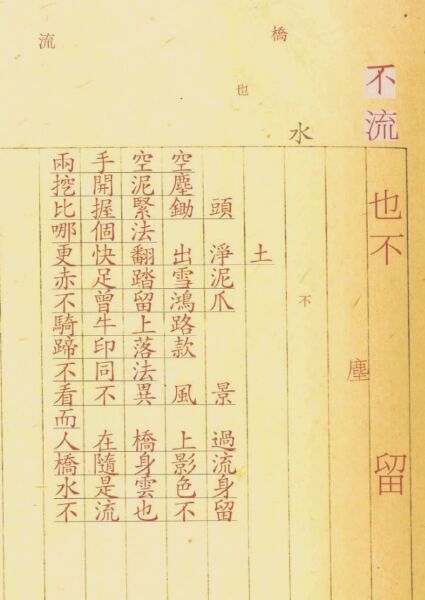 不流也不留
橋
流
也
水
不
塵
兩手空空
挖開泥塵
比握緊鋤頭
哪個法
更快翻出淨土
赤足踏雪泥
不曾留鴻爪
騎牛上路
蹄印落款
不同法
看不異風景
而
人在橋上過
橋隨身影流
水是雲色身
不流也不留